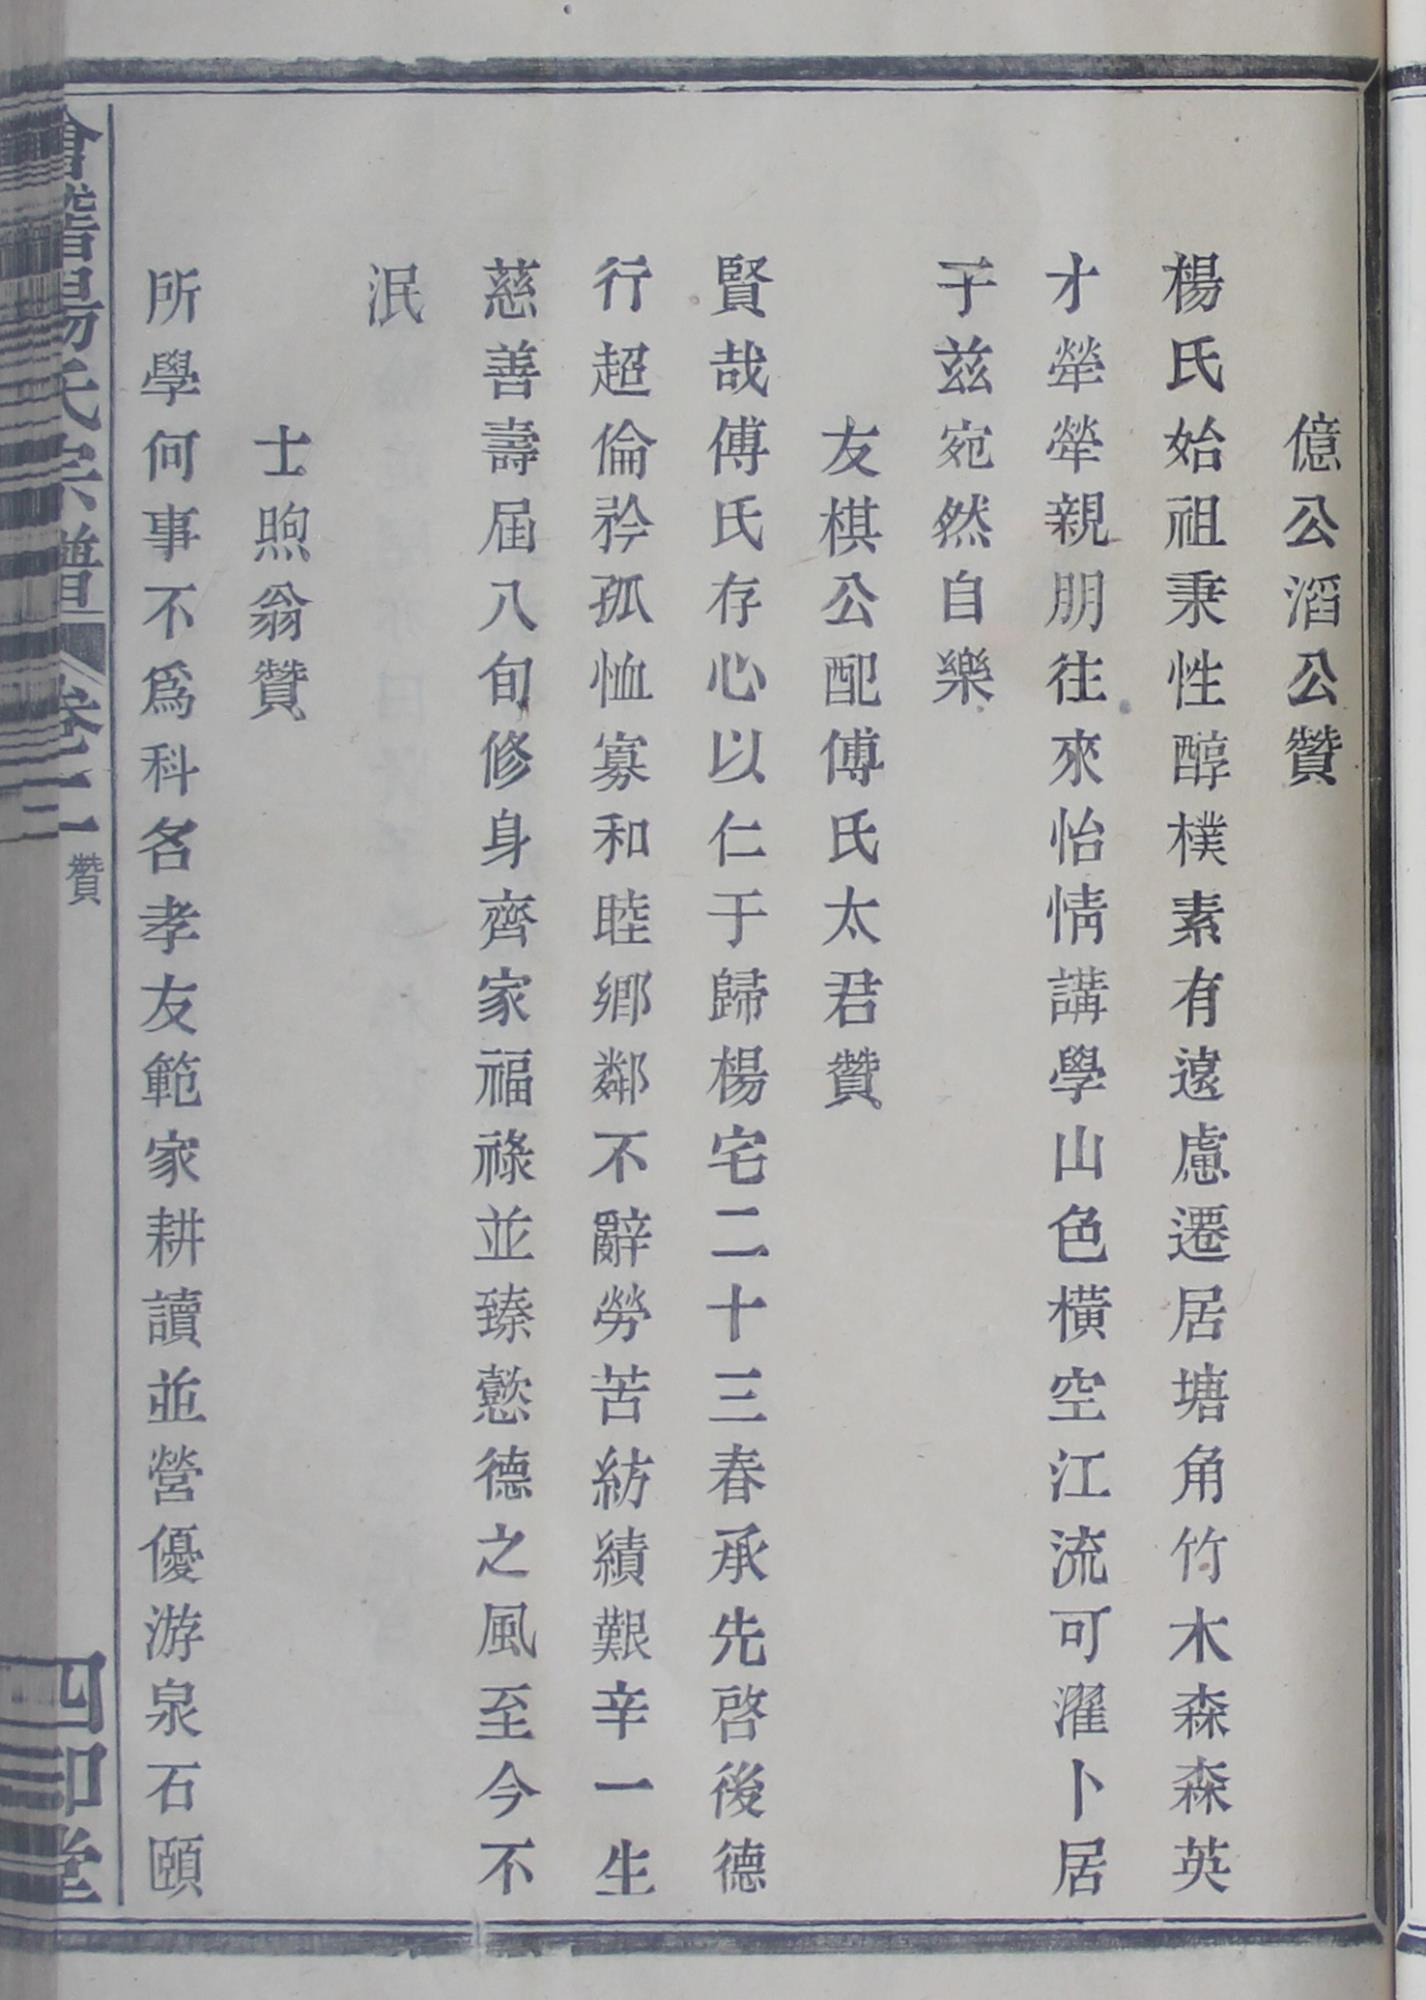 億公滔公贊
楊氏始祖秉性醇樸素有遠慮遷居塘角竹木森森英
才犖犖親朋往來怡情講學山色橫空江流可濯卜居
于兹宛然自樂
友棋公配傅氏太君贊
賢哉傅氏存心以仁于歸楊宅二十三春承先啓後德
行超倫矜孤恤寡和睦鄉鄰不辭勞苦紡績艱辛一生
慈善壽屆八旬修身齊家福祿並臻懿德之風至今不
泯
士煦翁贊
所學何事不爲科名孝友範家耕讀並營優游泉石頤
會稽楊氏宗譜
卷二
贊
四知堂